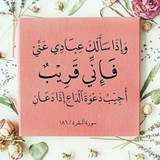 وَإِذَا سَأَلَكَ عِبَادِي عَنِّي
فَإِنِّي قَرِيبٌ
أُجِيبُ دَعْوَةَ الدَّاعِ إِذَا دَعَانِ
سورة البقرة / ١٨٦